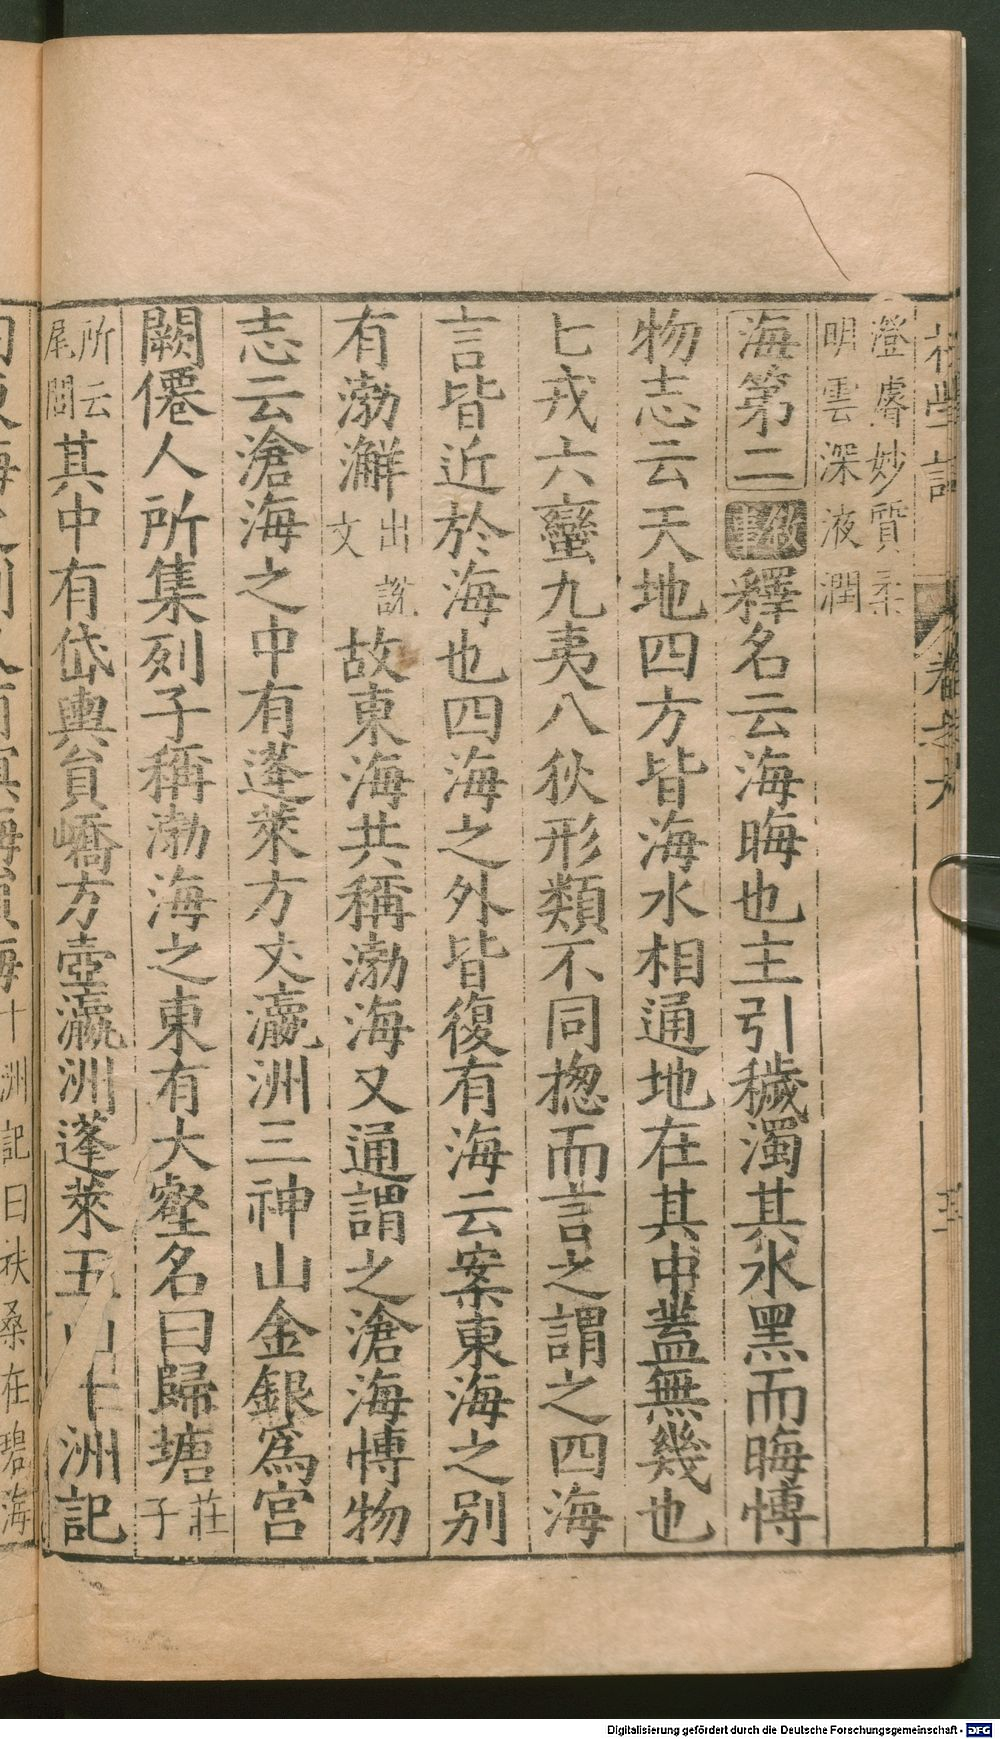 初學記 卷六
澄膚妙質柔
明雲深液潤
海第二 叙事 釋名云海晦也主引穢濁其水黑而晦博
物志云天地四方皆海水相通地在其中蓋無幾也
七戎六蠻九夷八狄形類不同揔而言之謂之四海
言皆近於海也四海之外皆復有海云案東海之别
有渤澥出說文故東海共稱渤海又通謂之滄海博物
志云滄海之中有蓬萊方丈瀛洲三神山金銀爲宮
闕僊人所集列子稱渤海之東有大壑名曰歸塘莊子
所云尾閭其中有岱輿員嶠方壺瀛洲蓬萊五山十洲記
十洲記曰扶桑在碧海
Digitalisierung gefördert durch die Deutsche Forschungsgemeinschaft - DFG